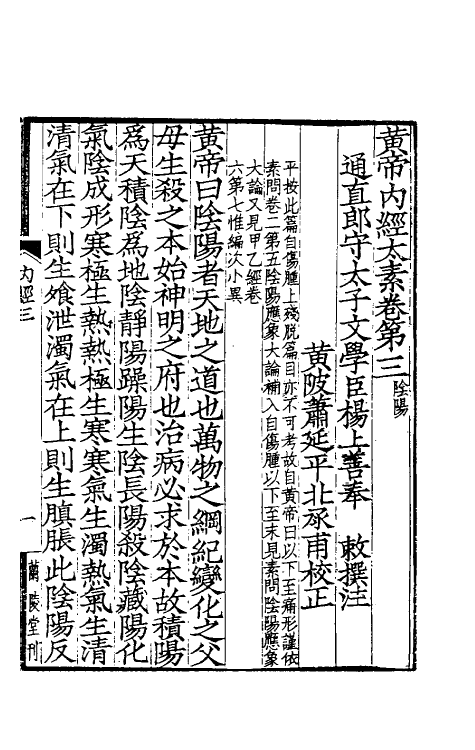 黃帝內經太素卷第三陰陽
通直郎守太子文學臣楊上善奉　敕撰注
黃陂蕭延平北承甫校正
平按此篇自傷腫上殘脫篇目亦不可考故自黃帝曰以下至痛形謹依
素問卷二第五陰陽應象大論補入自傷腫以下至末見素問陰陽應象
大論又見甲乙經卷
六第七惟編次小異
黃帝曰陰陽者天地之道也萬物之綱紀變化之父
母生殺之本始神明之府也治病必求於本故積陽
爲天積陰爲地陰靜陽躁陽生陰長陽殺陰藏陽化
氣陰成形寒極生熱熱極生寒寒氣生濁熱氣生清
清氣在下則生飧泄濁氣在上則生䐜脹此陰陽反
內經三
一
蘭陵堂刊